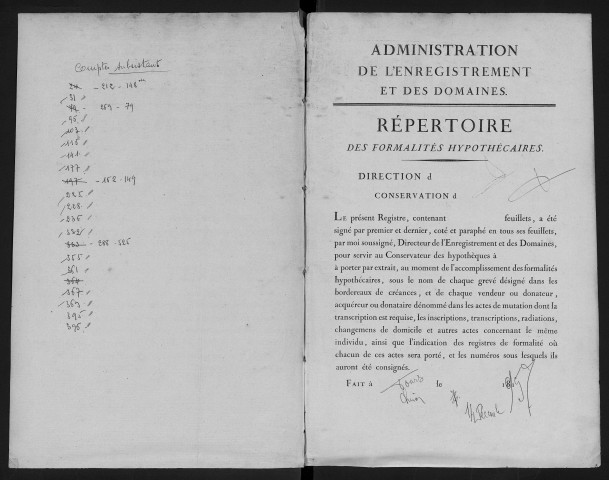 Comptes subsistant
24 - 212 - 148
31 "
72 - 259 - 79
95 "
107 "
118 "
141 "
177 "
197 - 162 - 149
225 "
228 "
235 "
332 "
355 "
361 "
364
367 "
369 "
395 "
396 "
ADMINISTRATION
DE L'ENREGISTREMENT
ET DES DOMAINES.
RÉPERTOIRE
DES FORMALITÉS HYPOTHÉCAIRES.
DIRECTION d
CONSERVATION d
LE présent Registre, contenant feuillets, a été
signé par premier et dernier, coté et paraphé en tous ses feuillets,
par moi soussigné, Directeur de l'Enregistrement et des Domaines,
pour servir au Conservateur des hypothèques à
à porter par extrait, au moment de l'accomplissement des formalités
hypothécaires, sous le nom de chaque grevé désigné dans les
bordereaux de créances, et de chaque vendeur ou donateur,
acquéreur ou donataire dénommé dans les actes de mutation dont la
transcription est requise, les inscriptions, transcriptions, radiations,
changemens de domicile et autres actes concernant le même
individu, ainsi que l'indication des registres de formalité où
chacun de ces actes sera porté, et les numéros sous lesquels ils
auront été consignés.
FAIT à le 18